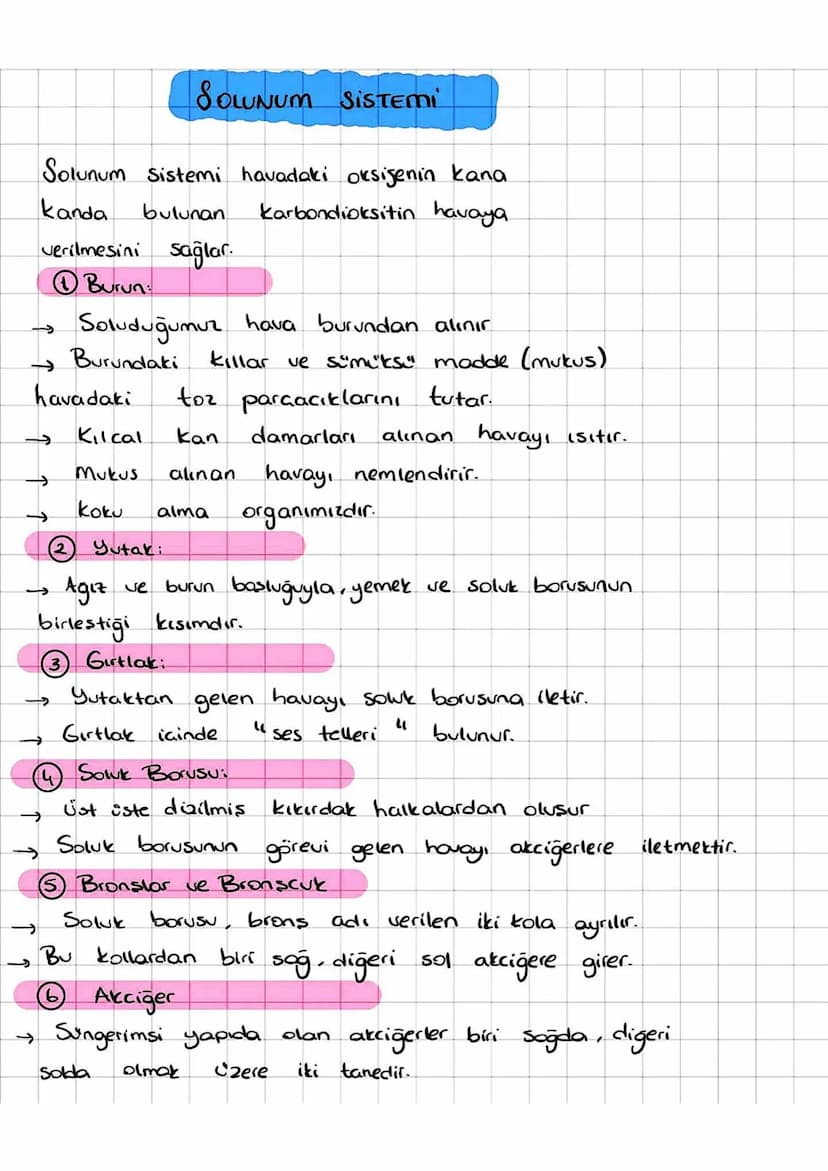 SOLUNUM SİSTEMİ
Solunum sistemi havadaki oksijenin kana
kanda bulunan karbondioksitin havaya
verilmesini sağlar.
① Burun:
→ Soluduğumuz hava burundan alınır
→ Burundaki kıllar ve sümüksü madde (mukus)
havadaki toz parçacıklarını tutar.
→ Kılcal kan damarları alınan havayı ısıtır.
→ Mukus alınan havayı nemlendirir.
→ koku alma organımızdır.
② Yutak:
→ Ağız ve burun boşluğuyla, yemek ve soluk borusunun
birleştiği kısımdır.
③ Gırtlak:
→ Yutaktan gelen havayı soluk borusuna iletir.
→ Gırtlak içinde "ses telleri" bulunur.
④ Soluk Borusu:
→ Üst üste dizilmiş kıkırdak halkalardan oluşur
→ Soluk borusunun görevi gelen havayı akciğerlere iletmektir.
⑤ Bronşlar ve Bronşcuk
→ Soluk borusu, bronş adı verilen iki kola ayrılır.
→ Bu kollardan biri sağ, diğeri sol akciğere girer.
⑥ Akciğer
→ Süngerimsi yapıda olan akciğerler biri sağda, diğeri
solda olmak üzere iki tanedir.